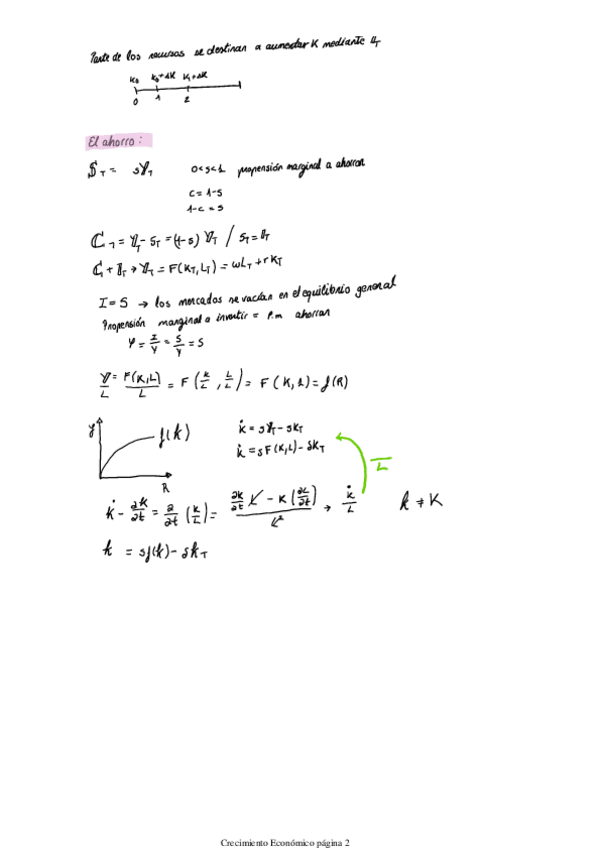 Parte de los recursos se destinan a aumentar K mediante I_T
K₀ K₀+ΔK K₁+ΔK
0 1 2
El ahorro:
S_T = sY_T 0<s<1 propensión marginal a ahorrar
c = 1-s
1-c = s
C_T = Y_T - S_T = (1-s) Y_T / S_T = I_T
C_T + I_T → Y_T = F(K_T, L_T) = wL_T + rK_T
I = S → los mercados se vacían en el equilibrio general
Propensión marginal a invertir = P.m ahorrar
φ = I/Y = S/Y = s
Y/L = F(K,L)/L = F(K/L, L/L) = F(K,1) = f(k)
y f(k)
k
k̇ = sY_T - δK_T
k̇ = sF(K,L) - δK_T
L
k̇ - ∂k/∂t = ∂/∂t (K/L) = (∂k/∂t L - K (∂L/∂t))/L² → k̇/L k ≠ K
k = sf(k) - δk_T
Crecimiento Económico página 2